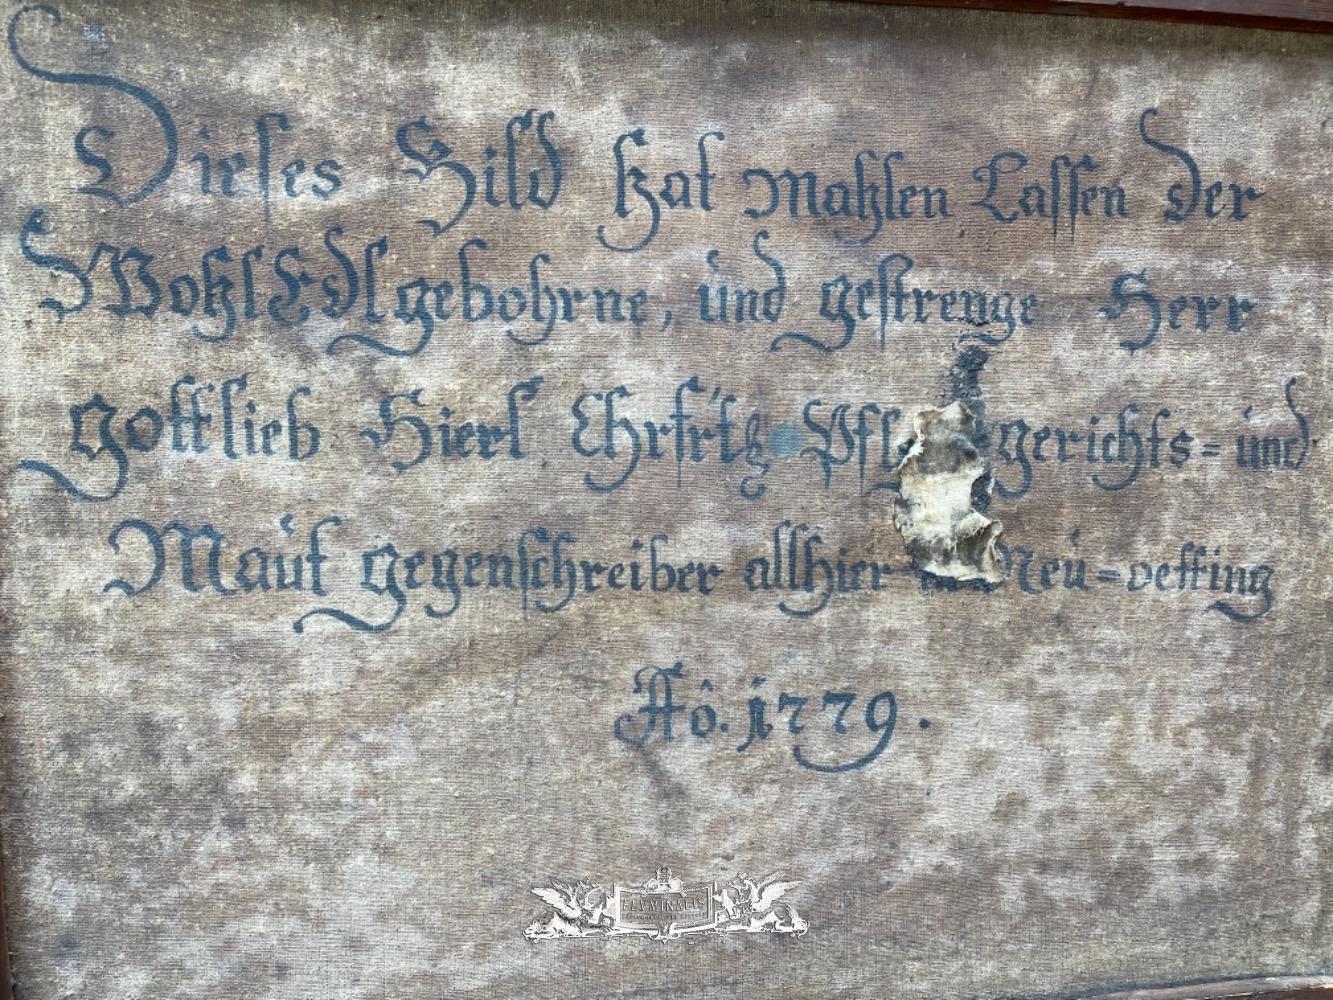 Dieses Bild hat Mahlen Lassen der
WohlEdlgebohrne, und gestrenge Herr
gottlieb Hierl Chrfrtl: Pfl gerichts= und
Maut gegenschreiber allhier Neu=oetting
Aô. 1779.